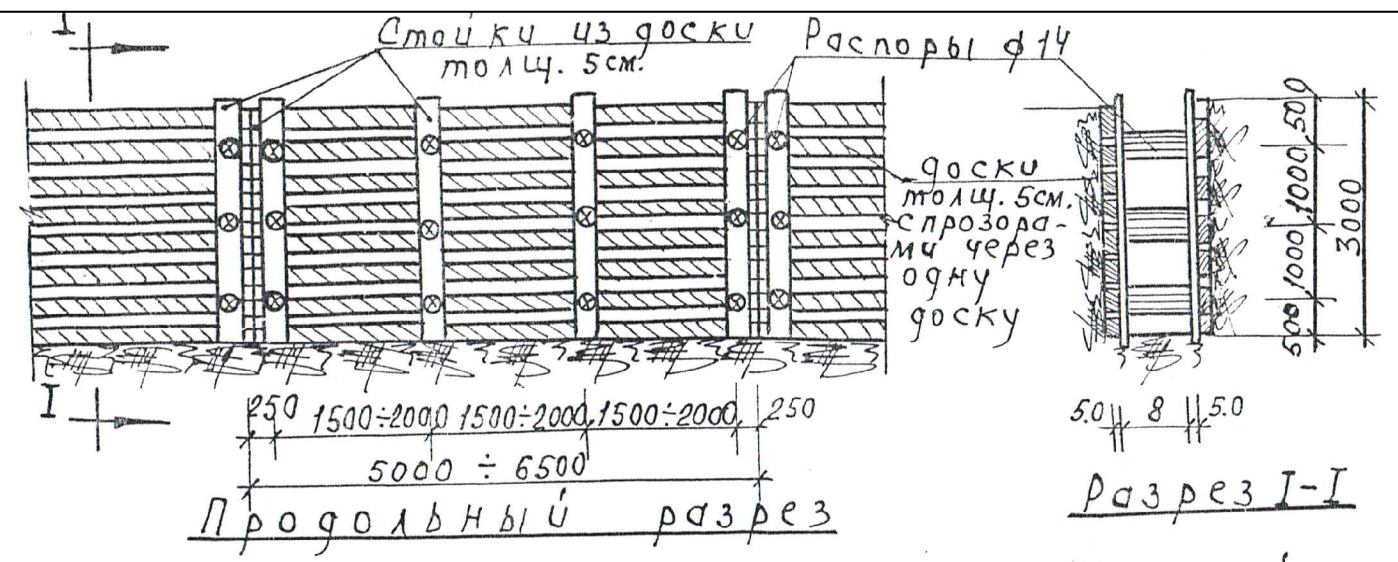 I
Стойки из доски
толщ. 5см.
Распоры ф14
доски
толщ. 5см.
с прозора-
ми через
одну
доску
500
1000
1000
500
3000
I
250 1500÷2000 1500÷2000 1500÷2000 250
5000 ÷ 6500
Продольный разрез
5.0 8 5.0
Разрез I-I